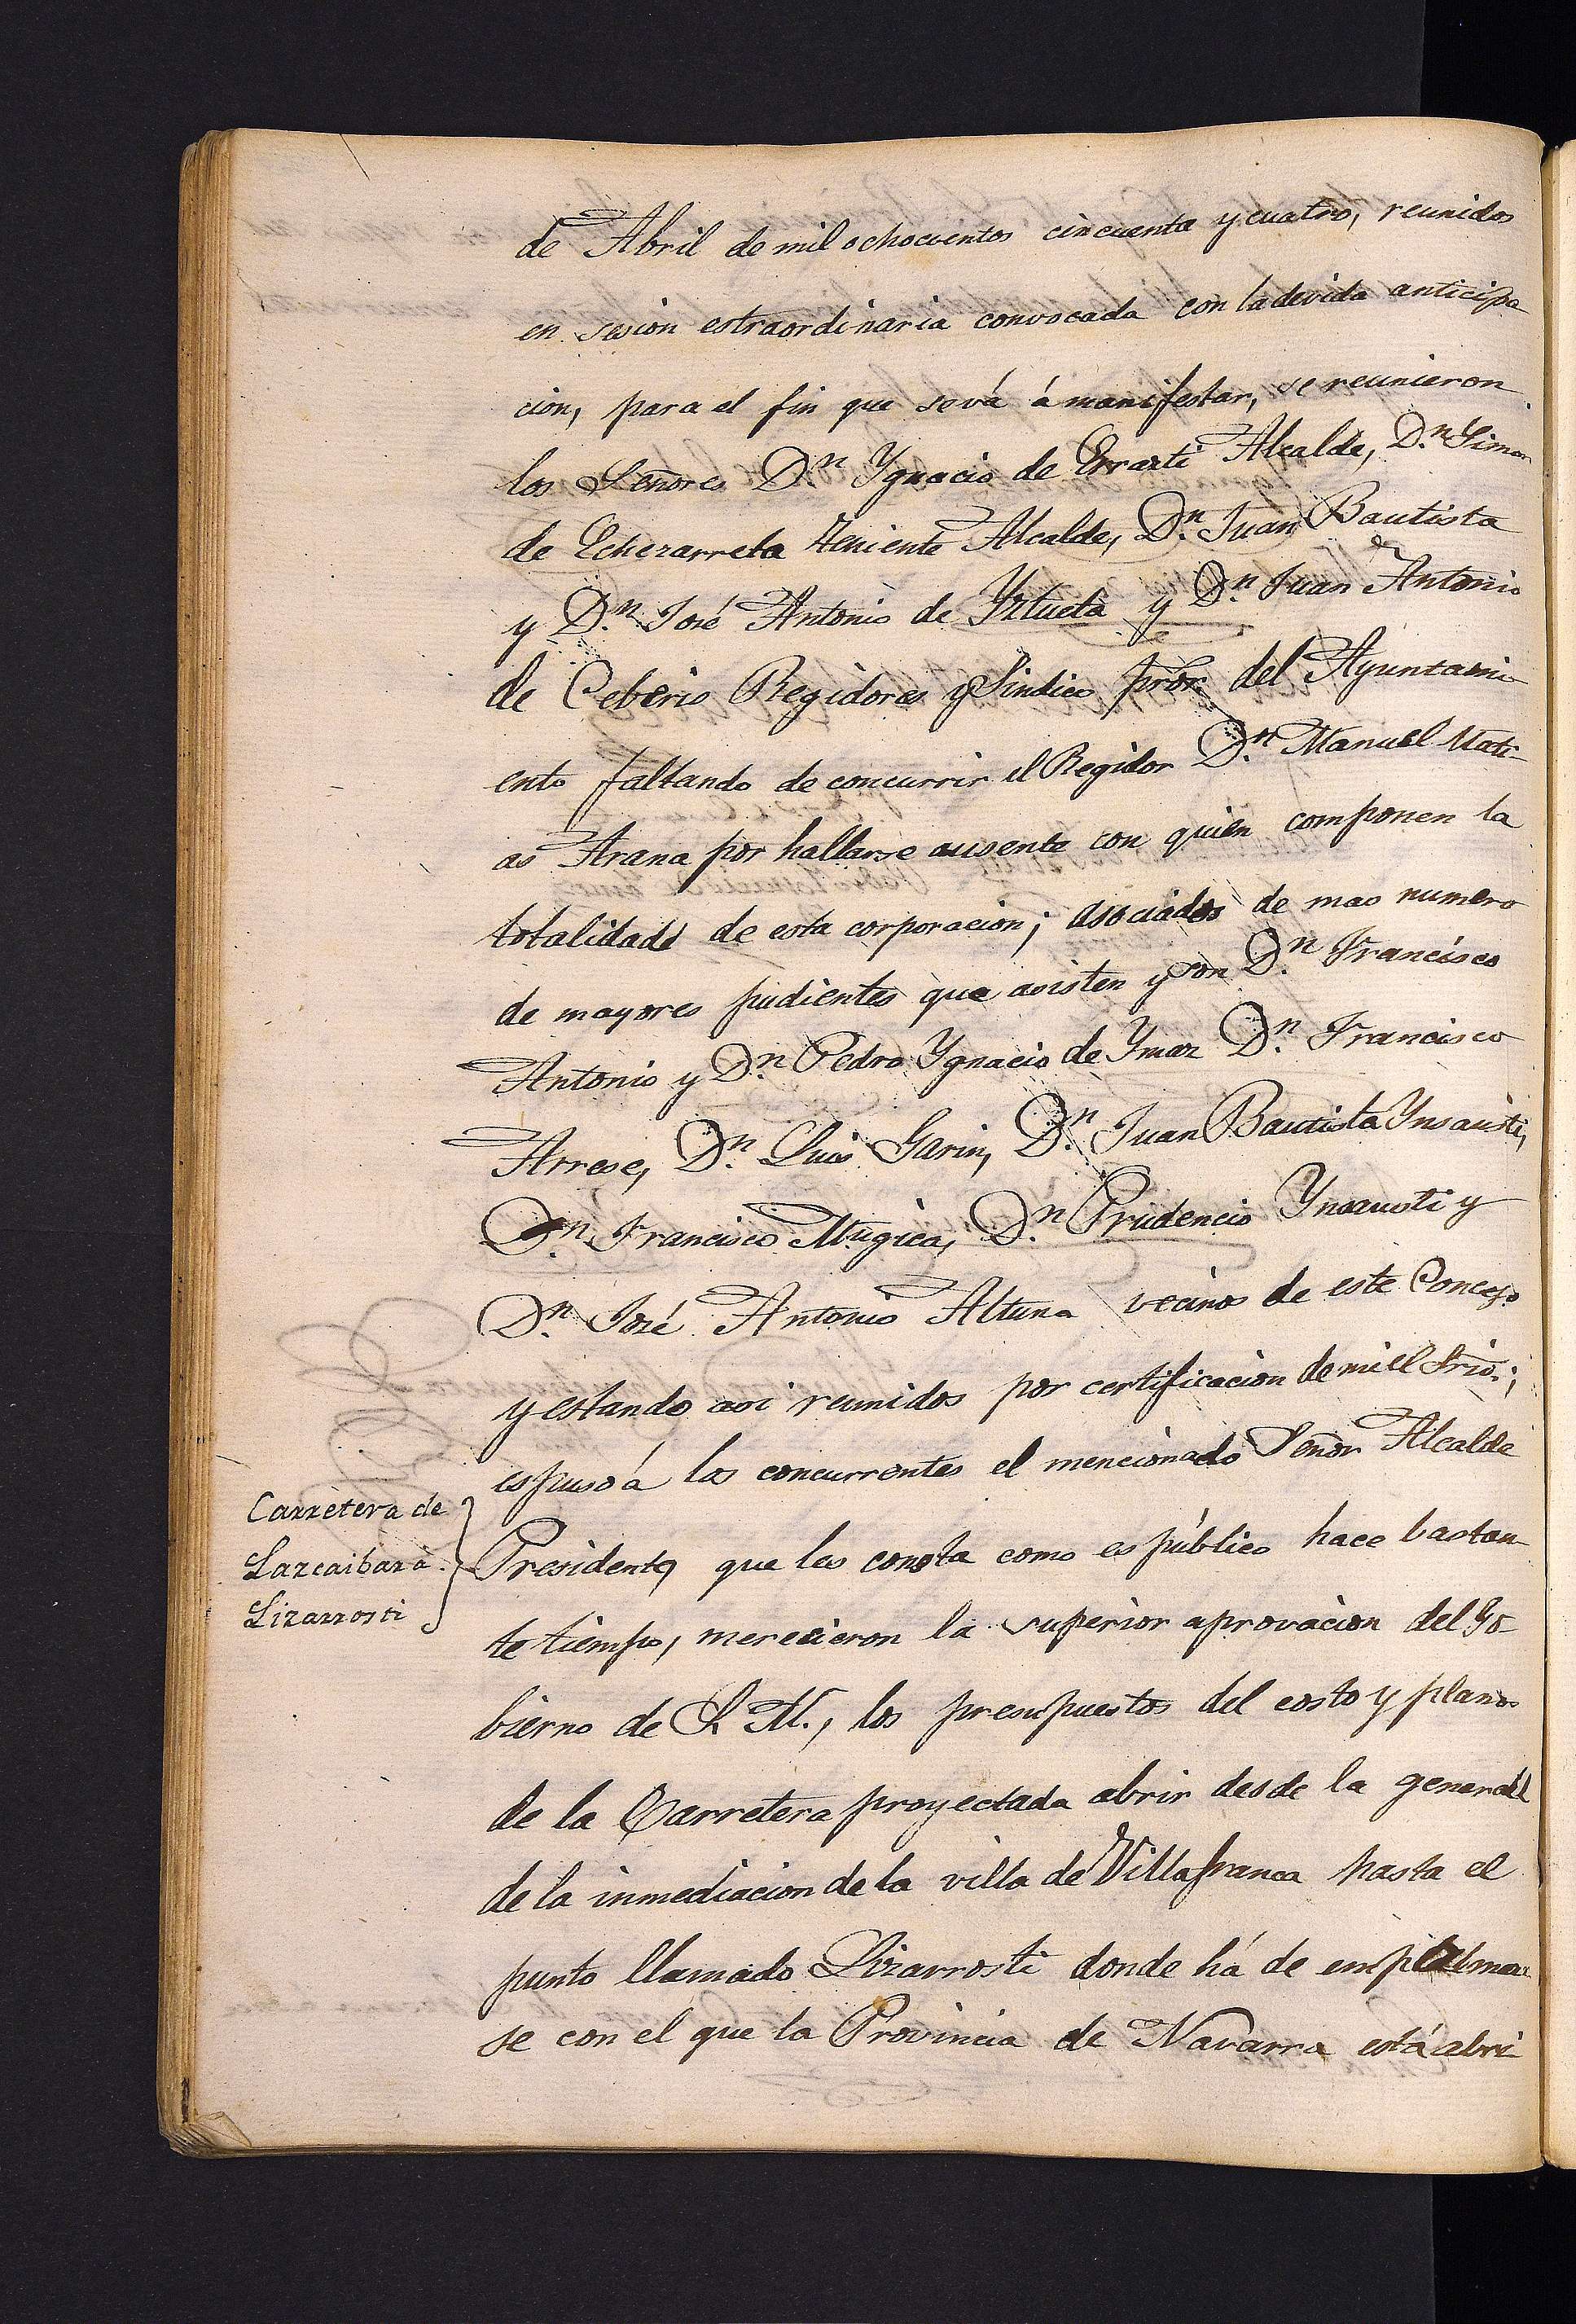 de Abril de mil ochocientos cincuenta y cuatro, reunidos
en sesion estraordinaria convocada con la devida anticipa
cion, para el fin que se vá á manifestar, se reunieron
los Señores D.n Ygnacio de Errazti Alcalde, D.n Simon
de Echezarreta Teniente Alcalde, D.n Juan Bautista
y D.n José Antonio de Yztueta y D.n Juan Antonio
de Ceberio Regidores y Sindico prōr del Ayuntami-
ento faltando de concurrir el Regidor D.n Manuel Mati-
as Arana por hallarse ausente con quien componen la
totalidad de esta corporacion; asociados de mas numero
de mayores pudientes que asisten y son D.n Francisco
Antonio y D.n Pedro Ygnacio de Ymaz D.n Francisco
Arrese, D.n Luis Garin, D.n Juan Bautista Ynsausti,
D.n Francisco Mugica, D.n Prudencio Ynsausti y
D.n José Antonio Altuna vecinos de este Concejo
y estando asi reunidos por certificacion de mi el Srio.;
espuso á los concurrentes el mencionado Señor Alcalde
Carretera de
Lazcaibar á
Lizarrosti
Presidente, que les consta como es público hace bastan-
te tiempo, merecieron la superior aprovacion del Go-
bierno de S. M., los presupuestos del costo y planos
de la Carretera proyectada abrir desde la general
de la inmediacion de la villa de Villafranca hasta el
punto llamado Lizarrosti donde há de empalmar
se con el que la Provincia de Navarra está abri